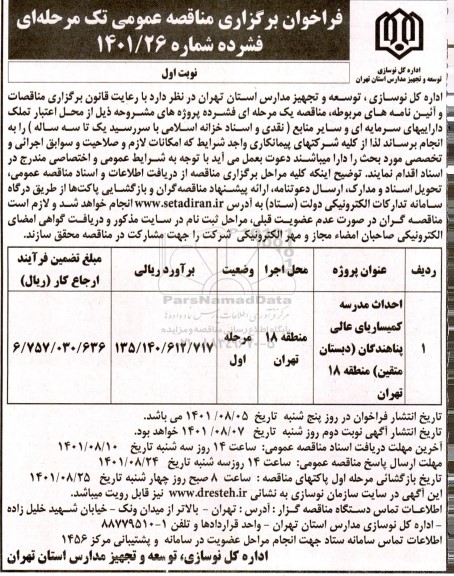 فراخوان برگزاری مناقصه عمومی تک مرحله‌ای
فشرده شماره ۱۴۰۱/۲۶
نوبت اول
اداره کل نوسازی
توسعه و تجهیز مدارس استان تهران
اداره کل نوسازی ، توسعه و تجهیز مدارس استان تهران در نظر دارد با رعایت قانون برگزاری مناقصات
و آئین نامه های مربوطه، مناقصه یک مرحله ای فشرده پروژه های مشروحه ذیل از محل اعتبار تملک
داراییهای سرمایه ای و سایر منابع ( نقدی و اسناد خزانه اسلامی با سررسید یک تا سه ساله ) را به
انجام برساند لذا از کلیه شرکتهای پیمانکاری واجد شرایط که امکانات لازم و صلاحیت و سوابق اجرائی و
تخصصی مورد بحث را دارا میباشند دعوت بعمل می آید با توجه به شرایط عمومی و اختصاصی مندرج در
اسناد اقدام نمایند. توضیح اینکه کلیه مراحل برگزاری مناقصه از دریافت اطلاعات و اسناد مناقصه عمومی،
تحویل اسناد و مدارک، ارسال دعوتنامه، ارائه پیشنهاد مناقصه‌گران و بازگشایی پاکت‌ها از طریق درگاه
سامانه تدارکات الکترونیکی دولت (ستاد) به آدرس www.setadiran.ir انجام خواهد شد و لازم است
مناقصه گران در صورت عدم عضویت قبلی، مراحل ثبت نام در سایت مذکور و دریافت گواهی امضای
الکترونیکی صاحبان امضاء مجاز و مهر الکترونیکی شرکت را جهت مشارکت در مناقصه محقق سازند.
ردیف	عنوان پروژه	محل اجرا	وضعیت	برآورد ریالی	مبلغ تضمین فرآیند ارجاع کار (ریال)
۱	احداث مدرسه کمیساریای عالی پناهندگان (دبستان متقین) منطقه ۱۸ تهران	منطقه ۱۸ تهران	مرحله اول	۱۳۵/۱۴۰/۶۱۲/۷۱۷	۶/۷۵۷/۰۳۰/۶۳۶
ParsNamadData
تاریخ انتشار فراخوان در روز پنج شنبه تاریخ ۱۴۰۱/۰۸/۰۵ می باشد.
تاریخ انتشار آگهی نوبت دوم روز شنبه تاریخ ۱۴۰۱/۰۸/۰۷ خواهد بود.
آخرین مهلت دریافت اسناد مناقصه عمومی: ساعت ۱۴ روز سه شنبه تاریخ ۱۴۰۱/۰۸/۱۰
مهلت ارسال پاسخ مناقصه عمومی: ساعت ۱۴ روزسه شنبه تاریخ ۱۴۰۱/۰۸/۲۴
تاریخ بازگشائی مرحله اول پاکتهای مناقصه : ساعت ۸ صبح روز چهار شنبه تاریخ ۱۴۰۱/۰۸/۲۵
این آگهی در سایت سازمان نوسازی به نشانی www.dresteh.ir نیز قابل رویت میباشد.
اطلاعات تماس دستگاه مناقصه گزار : آدرس : تهران - بالاتر از میدان ونک - خیابان شهید خلیل زاده
- اداره کل نوسازی مدارس استان تهران - واحد قراردادها و تلفن ۱-۸۸۷۷۹۵۱۰
اطلاعات تماس سامانه ستاد جهت انجام مراحل عضویت در سامانه و پشتیبانی مرکز ۱۴۵۶
اداره کل نوسازی، توسعه و تجهیز مدارس استان تهران